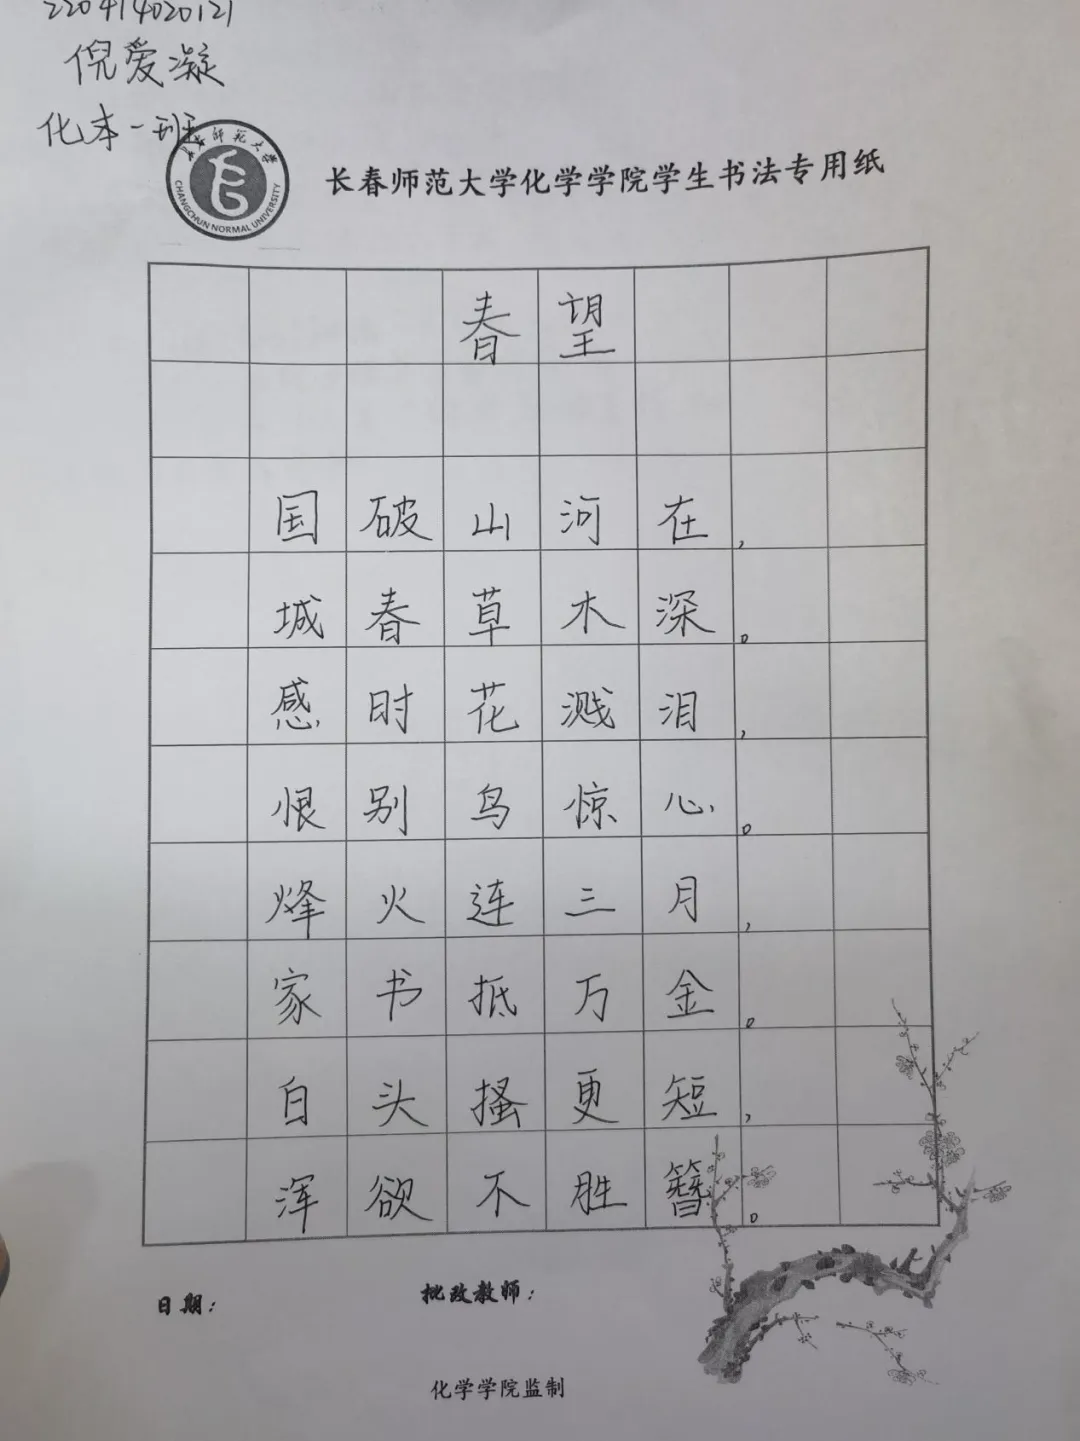 220414020121
倪爱凝
化本一班
长春师范大学
CHANGCHUN NORMAL UNIVERSITY
长春师范大学化学学院学生书法专用纸
春望
国破山河在，
城春草木深。
感时花溅泪，
恨别鸟惊心。
烽火连三月，
家书抵万金。
白头搔更短，
浑欲不胜簪。
日期： 批改教师：
化学学院监制